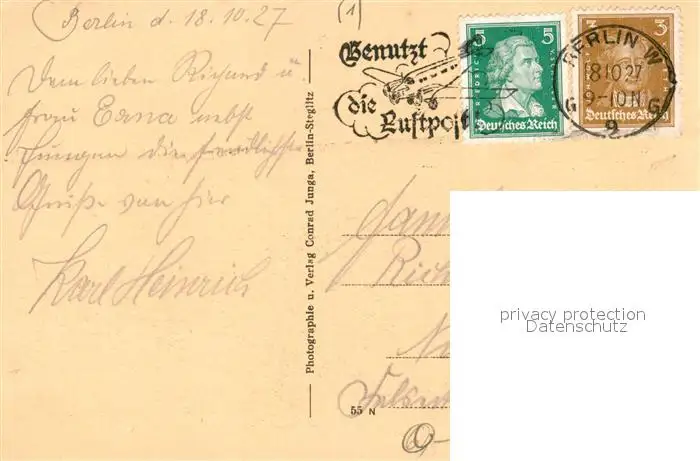 Berlin d. 18.10.27
Dem lieben Richard u.
Frau Erna nebst
Jungen die freundlichsten
Grüße von hier
Karl Heinrich
Photographie u. Verlag Conrad Junga, Berlin-Steglitz
55 N
(1)
Benutzt
die
Luftpost
5 5
FRIEDRICH
Deutsches Reich
3 3
Deutsches Reich
BERLIN W
18.10.27
9-10 N
G G
9
privacy protection
Datenschutz